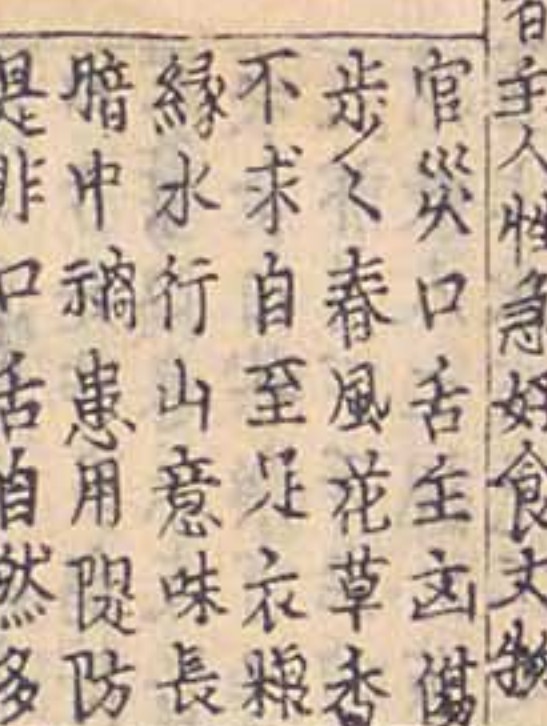 主人性急好食丈物
官災口舌主凶傷
歩々春風花草香
不求自至足衣糧
縁水行山意味長
暗中禍患用隄防
是非口舌自然多